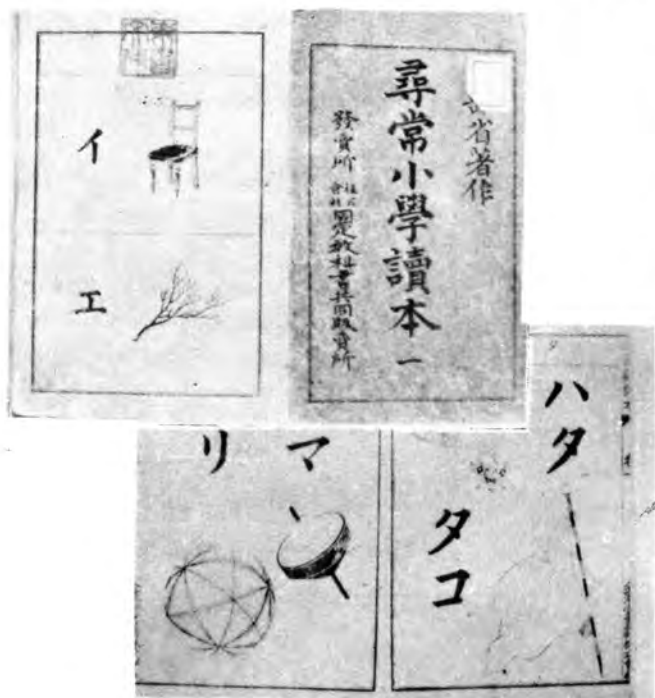 省著作
尋常小學讀本 一
發賣所 株式會社 國定教科書共同販賣所
イ
エ
ハタ
タコ
マ
リ